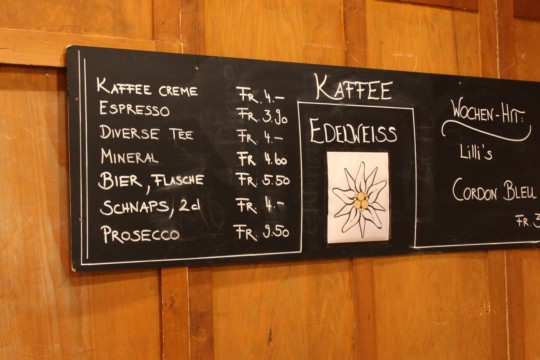 KAFFEE CREME FR. 4.–
ESPRESSO FR. 3.90
DIVERSE TEE FR. 4.–
MINERAL FR. 4.60
BIER, FLASCHE FR. 5.50
SCHNAPS, 2d FR. 4.–
PROSECCO FR. 9.50
KAFFEE
EDELWEISS
WOCHEN-HIT:
Lilli's
CORDON BLEU
FR. 3